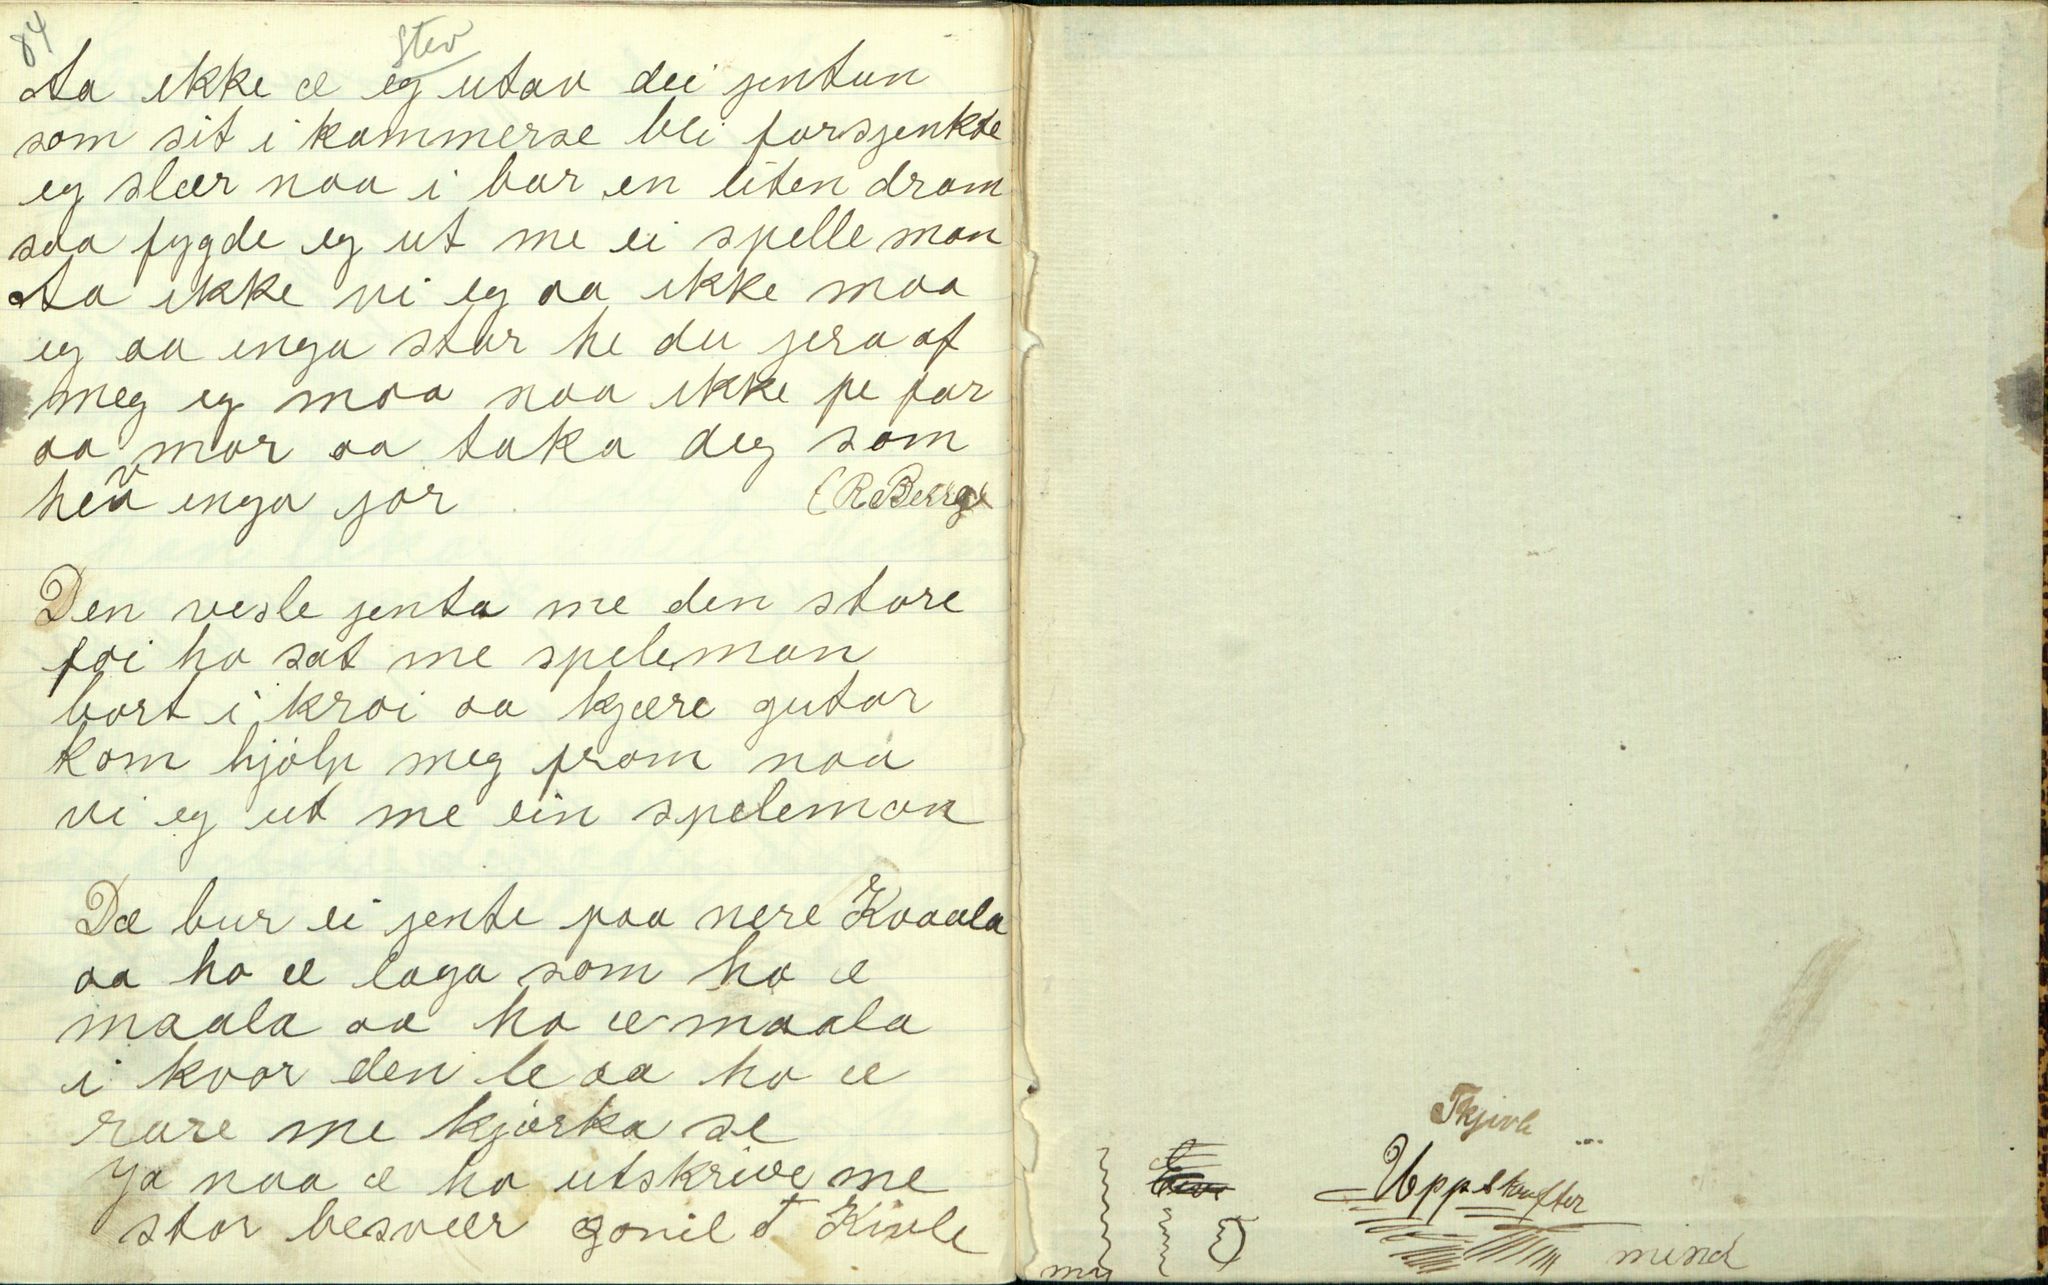 84
Stev
Aa ikke æ eg utav dei jentun
som sit i kammerse blei forsjenkde
eg slær naa i bar en liten dram
saa fygde eg ut me ei spelle man
Aa ikke vi eg aa ikke maa
eg aa inga star he du jera af
meg eg maa naa ikke fe far
aa mor aa taka deg som
heva inga jor (R Berge
Den vesle jenta me den store
foi ho sat me speleman
bort i kroi aa kjære gutar
kom hjølp meg fram naa
vi eg ut me ein speleman
Dæ bur ei jente paa nere Kvaala
aa ho æ laga som ho æ
maala aa ho æ maala
i kvar den le aa ho æ
rare me kjørka se
Ja naa æ ho utskrive me
stor besvær gonil T Kivle
Tkjivle
Uppskrifter
mind